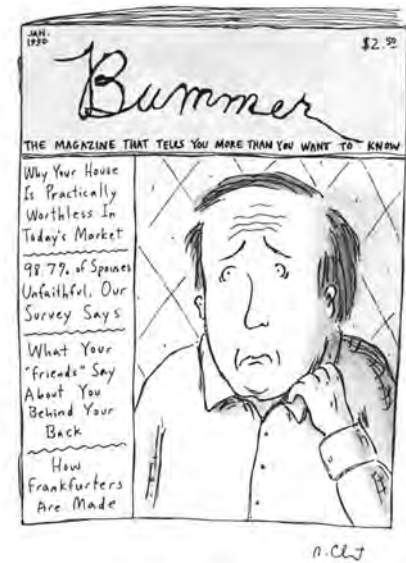 JAN.
1990
$2.50
Bummer
THE MAGAZINE THAT TELLS YOU MORE THAN YOU WANT TO KNOW
Why Your House
Is Practically
Worthless In
Today's Market
98.7% of Spouses
Unfaithful, Our
Survey Says
What Your
"friends" Say
About You
Behind Your
Back
How
Frankfurters
Are Made